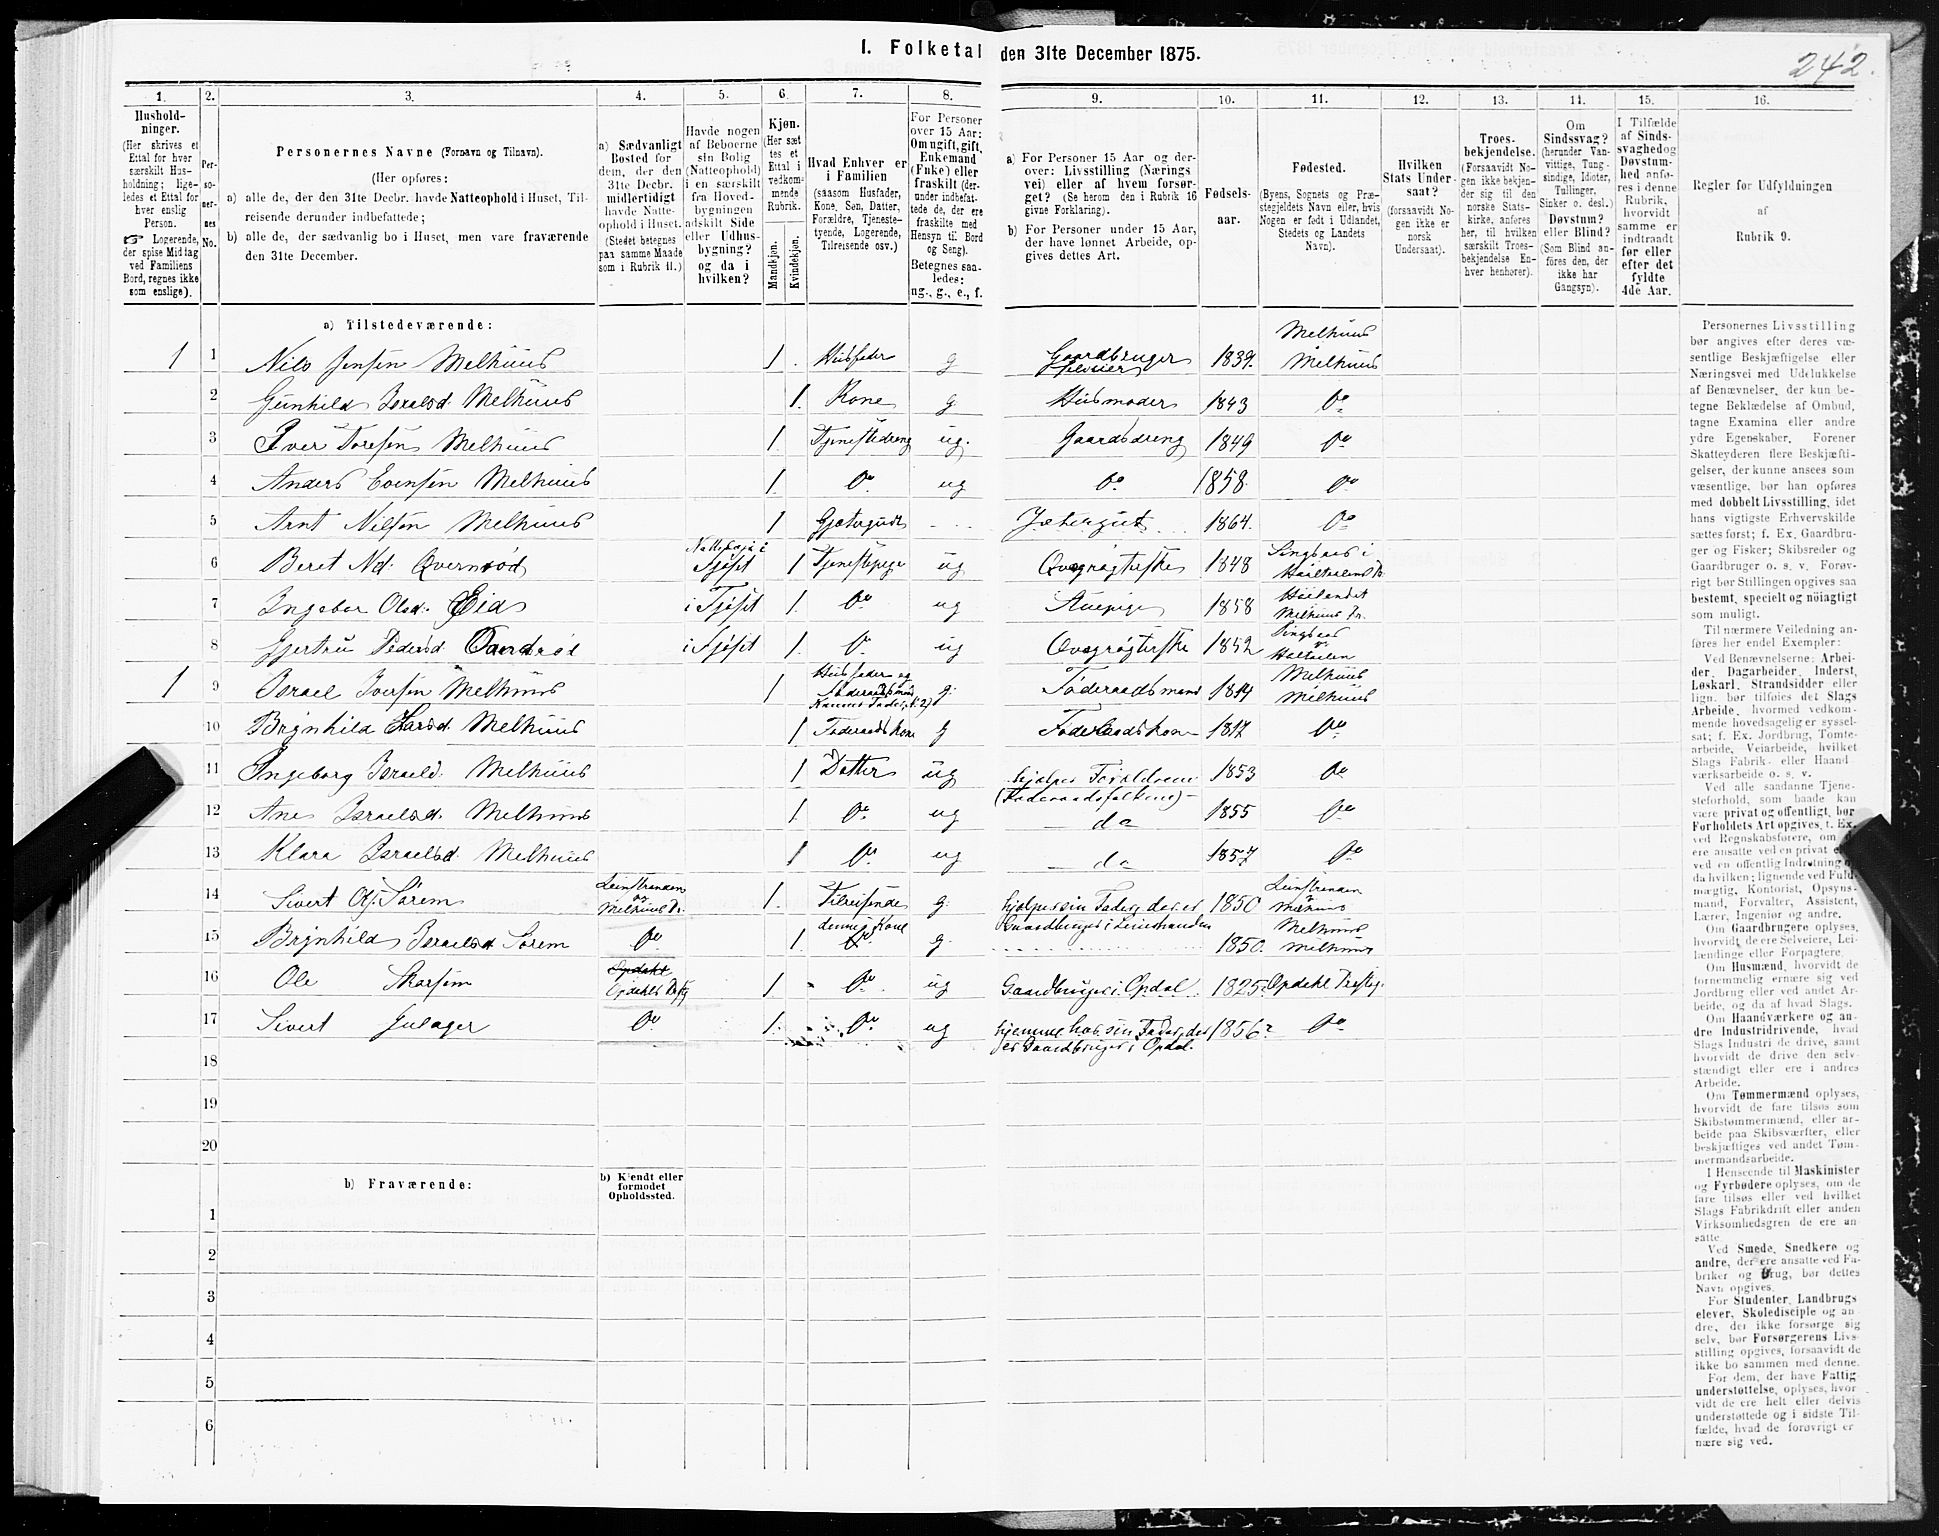 I. Folketal den 31te December 1875.
242.
1. 2. 3. 4. 5. 6. 7. 8. 9. 10. 11. 12. 13. 14. 15. 16.
Hushold-
ninger.
(Her skrives et
Ettal for hver
særskilt Hus-
holdning; lige-
ledes et Ettal for
hver enslig
Person.
☞ Logerende,
der spise Middag
ved Familiens
Bord, regnes ikke
som enslige).
Per-
so-
ner-
nes
No.
Personernes Navne (Fornavn og Tilnavn).
(Her opføres:
a) alle de, der den 31te Decbr. havde Natteophold i Huset, Til-
reisende derunder indbefattede;
b) alle de, der sædvanlig bo i Huset, men vare fraværende
den 31te December.
a) Sædvanligt
Bosted for
dem, der den
31te Decbr.
midlertidigt
havde Natte-
ophold i Huset.
(Stedet betegnes
paa samme Maade
som i Rubrik 11.)
Havde nogen
af Beboerne
sin Bolig
(Natteophold)
i en særskilt
fra Hoved-
bygningen
adskilt Side
eller Udhus-
bygning?
og da i
hvilken?
Kjøn.
(Her sæt
tes et
Ettal i
vedkom-
mende
Rubrik.
Mandkjøn.
Kvindekjøn.
Hvad Enhver er
i Familien
(saasom Husfader,
Kone, Søn, Datter,
Forældre, Tjeneste-
tyende, Logerende,
Tilreisende osv.)
For Personer
over 15 Aar:
Om ugift, gift,
Enkemand
(Enke) eller
fraskilt (der-
under indbefat-
tede de, der ere
fraskilte med
Hensyn til Bord
og Seng).
Betegnes saa-
ledes:
ug., g., e., f.
a) For Personer 15 Aar og der-
over: Livsstilling (Nærings
vei) eller af hvem forsør-
get? (Se herom den i Rubrik 16
givne Forklaring).
b) For Personer under 15 Aar,
der have lønnet Arbeide, op-
gives dettes Art.
Fødsels-
aar.
Fødested.
(Byens, Sognets og Præ-
stegjeldets Navn eller, hvis
Nogen er født i Udlandet,
Stedets og Landets
Navn).
Hvilken
Stats Under-
saat?
(forsaavidt No-
gen ikke er
norsk
Undersaat).
Troes-
bekjendelse.
(Forsaavidt No-
gen ikke bekjen-
der sig til den
norske Stats-
kirke, anføres
her, til hvilken
særskilt Troes-
bekjendelse En-
hver henhører).
Om
Sindssvag?
(herunder Van-
vittige, Tung-
sindige, Idioter,
Tullinger,
Sinker o. desl.)
Døvstum?
eller Blind?
(Som Blind an-
føres den, der
ikke har
Gangsyn).
I Tilfælde
af Sinds-
svaghed og
Døvstum-
hed anfø-
res i denne
Rubrik,
hvorvidt
samme er
indtraadt
før eller
efter det
fyldte
4de Aar.
Regler for Udfyldningen
af
Rubrik 9.
a) Tilstedeværende:
1 1 Nils Jensen Melhuus 1 Husfader g Gaardbruger Selveier 1839. Melhuus Melhuus
2 Gunhild Israelsd. Melhuus 1. Kone g. Husmoder 1843 Do
3 Iver Toresen Melhuus 1 Tjenestedreng ug. Gaardsdreng 1849 Do
4 Anders Evensen Melhuus 1. Do. ug Do 1858. Do
5 Arnt Nilsen Melhuus 1 Gjætergut Jætergut 1864. Do
6 Beret Nd. Qvernrød i Fjøset 1 Tjenestepige ug Qvægrøgterske 1848 Singsaas i Haaltaalens Pr.
7 Ingebor Olsd. Eid i Fjøset 1. Do ug Stuepige 1858 Høilandet Melhuus Pr.
8 Gjertru Pedersd. i Fjøset 1. D ug Qvægrøgterske 1852 Singsaas
1 9 Israel Iversen Melhuus 1 Husfader og Føderaadsmand g. Føderaadsmand 1814 Melhuus Melhuus
10 Brynhild Melhuus 1 Føderaadskone g Føderaadskone 1817 Do
11 Ingeborg Israelsd. Melhuus 1 Datter ug hjelper Forældrene 1853 Do
12 Ane Israelsd. Melhuus 1. Do. ug (Føderaadsfolkene) - do 1855 Do
13 Klara Israelsd. Melhuus 1 Do. ug do 1857 Do
14 Sivert Ols. Sørem Leinstranden og Melhuus Pr. 1. Tilreisende g. hjelper sin Fader, der er 1850 Leinstranden Melhuus
15 Brynhild Israelsd Sørem Do 1 dennes Kone Do. g. Gaardbruger i Leinstranden 1850. Melhuus Melhuus
16 Ole Skorsem Opdahl 1. Do. ug Gaardbruger i Opdal. 1825. Opdahl Prestg.
17 Sivert Gulager Do 1. Do. ug hjemme hos sin Fader, der er Gaardbruger i Opdal. 1856? Do
18
19
20
b) Fraværende:
b) Kjendt eller
formodet
Opholdssted.
1
2
3
4
5
6
Personernes Livsstilling
bør angives efter deres væ-
sentlige Beskjæftigelse eller
Næringsvei med Udelukkelse
af Benævnelser, der kun be-
tegne Beklædelse af Ombud,
tagne Examina eller andre
ydre Egenskaber. Forener
Skatteyderen flere Beskjæfti-
gelser, der kunne ansees som
væsentlige, bør han opføres
med dobbelt Livsstilling, idet
hans vigtigste Erhvervskilde
sættes først; f. Ex. Gaardbru-
ger og Fisker; Skibsreder og
Gaardbruger o. s. v. Forøv-
rigt bør Stillingen opgives saa
bestemt, specielt og nöiagtigt
som muligt.
Til nærmere Veiledning an-
føres her endel Exempler:
Ved Benævnelserne: Arbei-
der, Dagarbeider, Inderst,
Løskarl, Strandsidder eller
lign. bør tilføies det Slags
Arbeide, hvormed vedkom-
mende hovedsagelig er syssel-
sat; f. Ex. Jordbrug, Tomte-
arbeide, Veiarbeide, hvilket
Slags Fabrik- eller Haand-
værksarbeide o. s. v.
Ved alle saadanne Tjene-
steforhold, som baade kan
være privat og offentligt, bør
Forholdets Art opgives, t. Ex.
ved Regnskabsførere, om de
ere ansatte ved en privat eller
ved en offentlig Indretning og
da hvilken; lignende ved Fuld-
mægtig, Kontorist, Opsyns-
mand, Forvalter, Assistent,
Lærer, Ingeniør og andre.
Om Gaardbrugere oplyses,
hvorvidt de ere Selveiere, Lei-
lændinge eller Forpagtere.
Om Husmænd, hvorvidt de
fornemmelig ernære sig ved
Jordbrug eller ved andet Ar-
beide, og da af hvad Slags.
Om Haandværkere og an-
dre Industridrivende, hvad
Slags Industri de drive, samt
hvorvidt de drive den selv-
stændigt eller ere i andres
Arbeide.
Om Tømmermænd oplyses,
hvorvidt de fare tilsøs som
Skibstømmermænd, eller ar-
beide paa Skibsværfter, eller
beskjæftiges ved andet Tøm-
mermandsarbeide.
I Henseende til Maskinister
og Fyrbødere oplyses, om de
fare tilsøs eller ved hvilket
Slags Fabrikdrift eller anden
Virksomhedsgren de ere an-
satte.
Ved Smede, Snedkere og
andre, der ere ansatte ved Fa-
briker og Brug, bør dettes
Navn opgives.
For Studenter, Landbrugs
elever, Skoledisciple og an-
dre, der ikke forsørge sig
selv, bør Forsørgerens Livs-
stilling opgives, forsaavidt de
ikke bo sammen med denne.
For dem, der have Fattig-
understøttelse, oplyses, hvor
vidt de ere helt eller delvis
understøttede og i sidste Til-
fælde, hvad de forøvrigt er
nære sig ved.